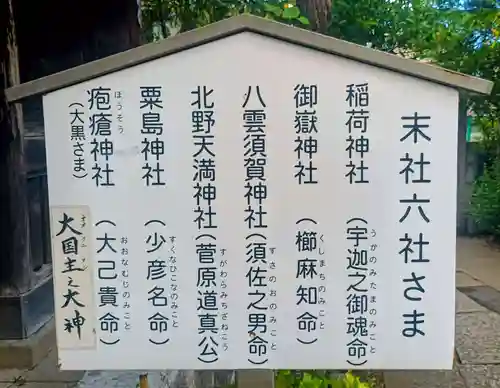 末社六社さま
稲荷神社（宇迦之御魂命）
うかのみたまのみこと
御嶽神社（櫛麻知命）
くしまちのみこと
八雲須賀神社（須佐之男命）
すさのおのみこと
北野天満神社（菅原道真公）
すがわらみちざねこう
粟島神社（少彦名命）
すくなひこなのみこと
疱瘡神社（大己貴命）
ほうそう
おおなむじのみこと
（大黒さま）
大国主之大神